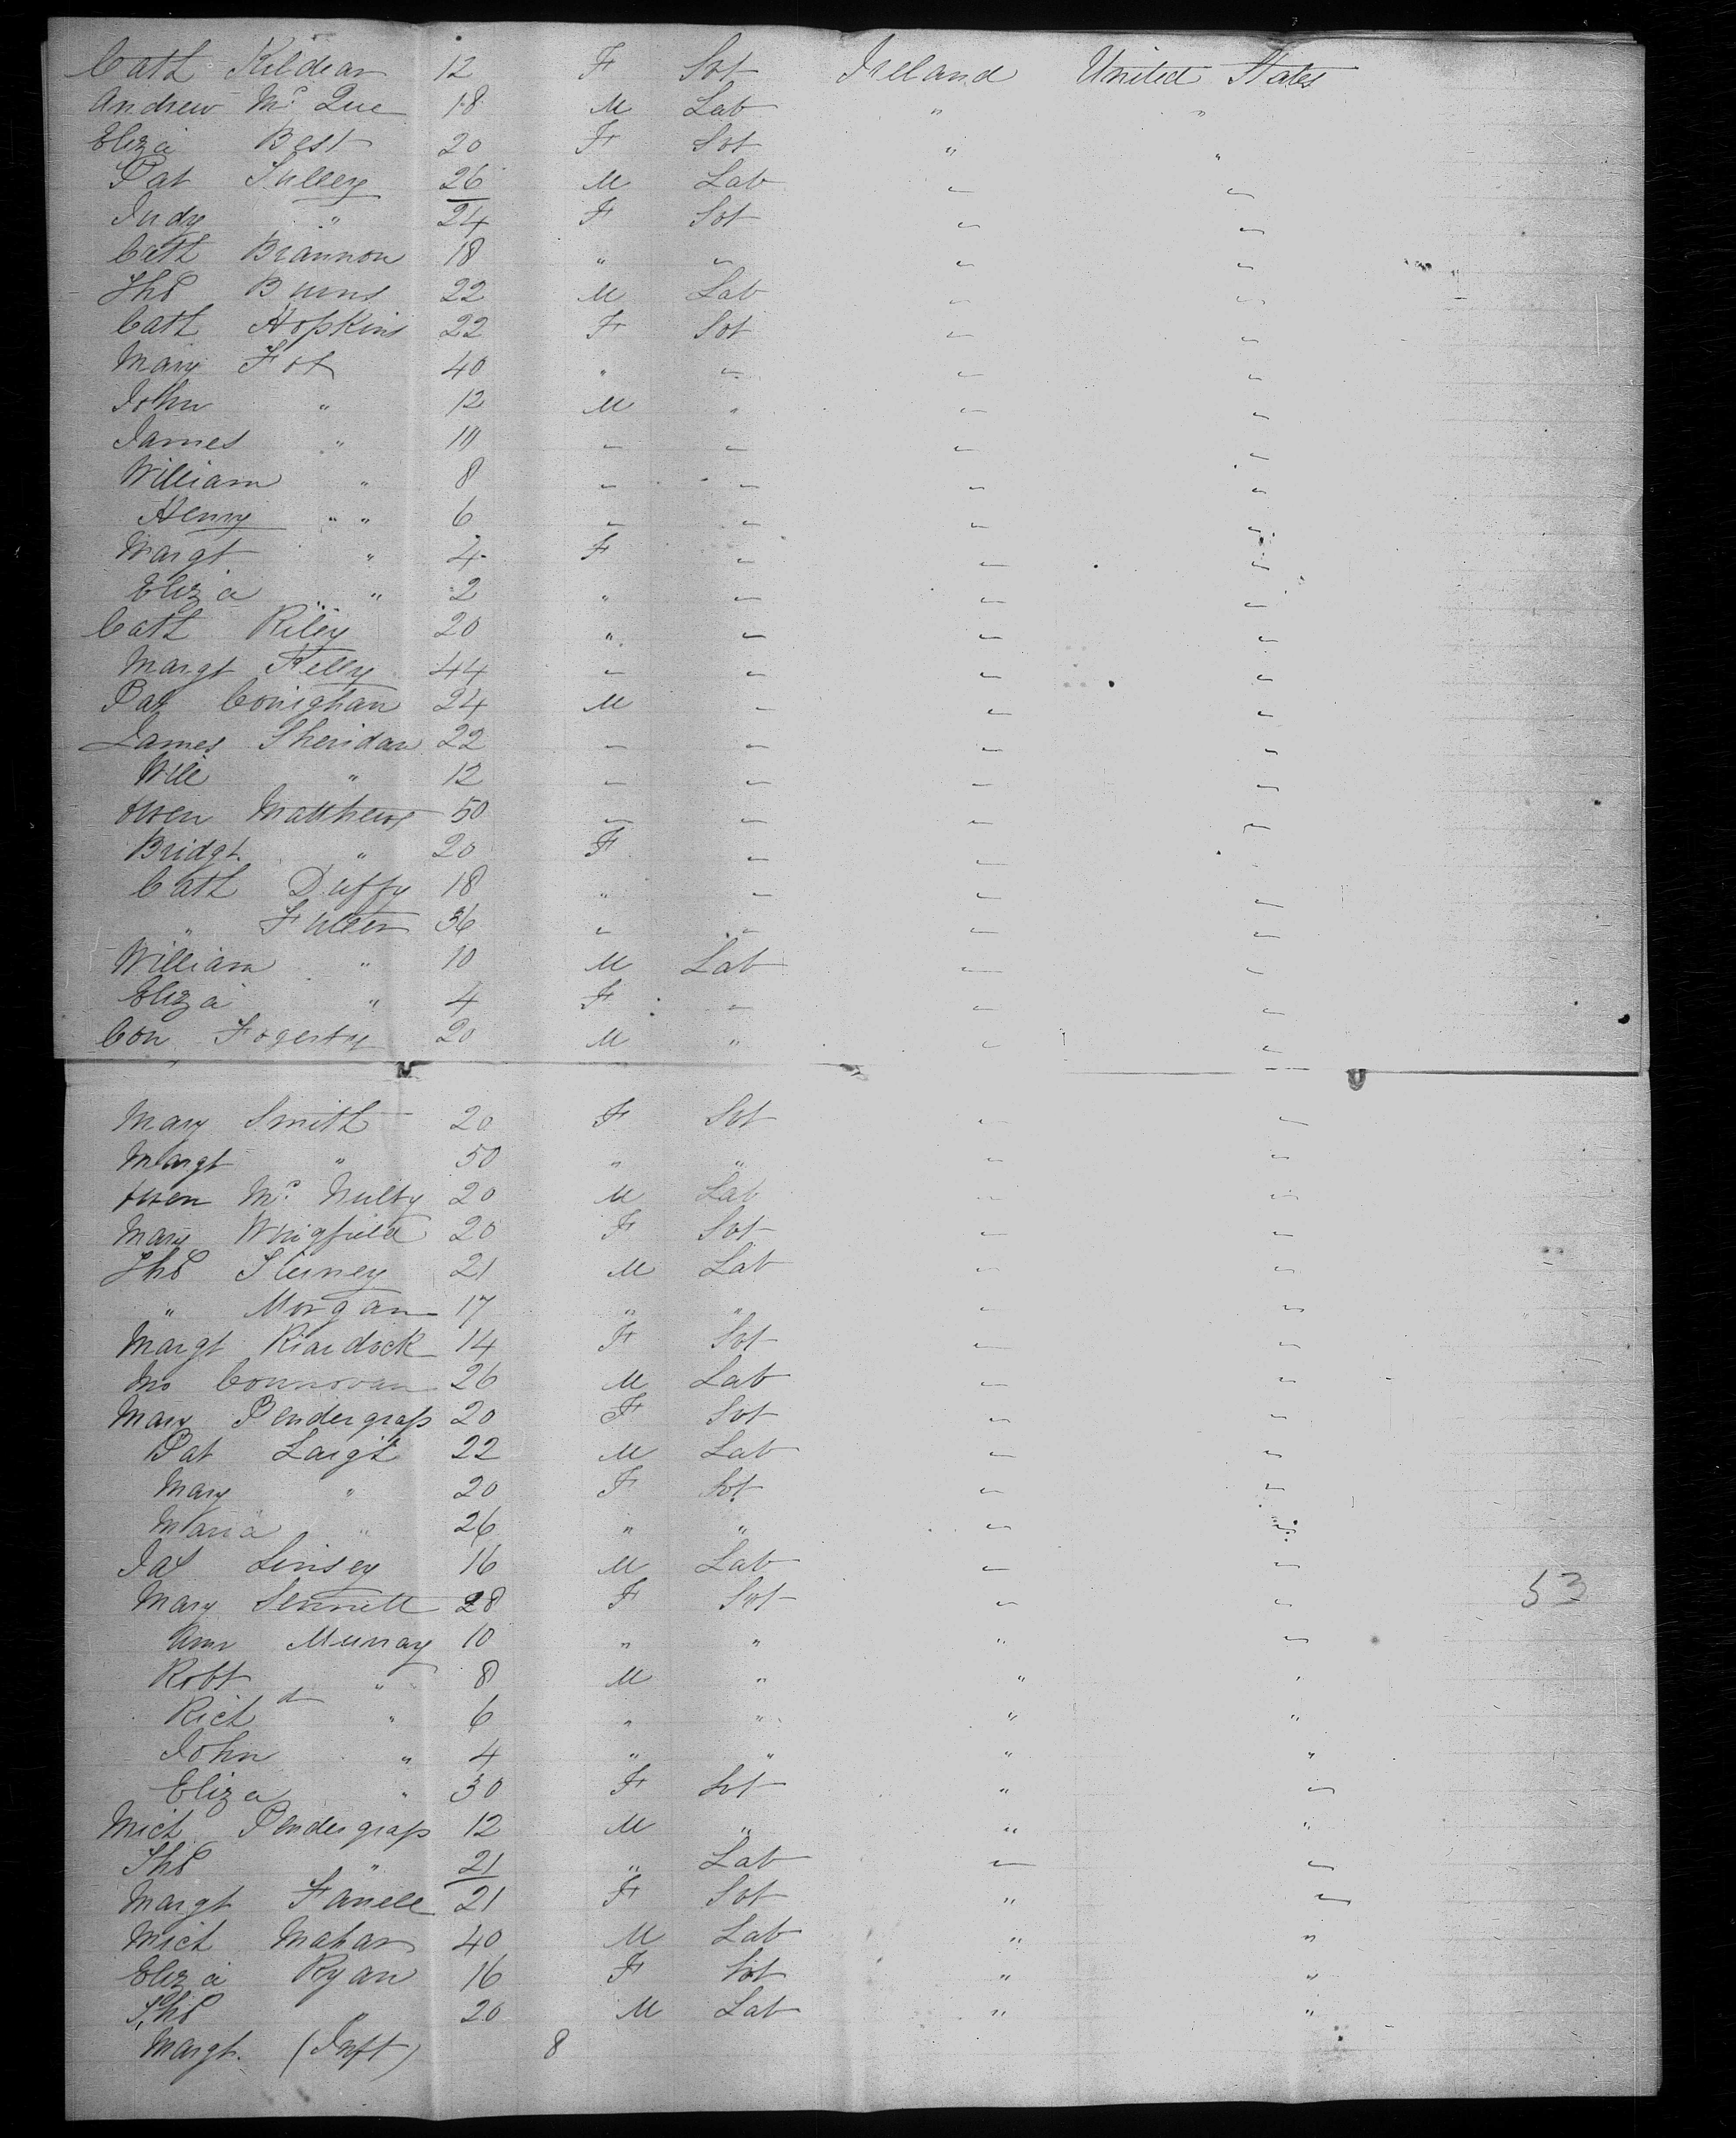 Cath Kildean 12 F Svt Ireland United States
Andrew Mc Que 18 M Lab " "
Eliza Best 20 F Svt " "
Pat Tulley 26 M Lab " "
Judy " 24 F Svt " "
Cath Brannon 18 " " " "
Thos Burns 22 M Lab " "
Cath Hopkins 22 F Svt " "
Mary Fox 40 " " " "
John " 12 M " " "
James " 10 " " " "
William " 8 " " " "
Henry " " 6 " " " "
Margt " 4 F " " "
Eliza " 2 " " " "
Cath Riley 20 " " " "
Margt Kelly 44 " " " "
Pat Conighan 24 M " " "
James Sheridan 22 " " " "
Will " 12 " " " "
Owen Matthews 50 " " " "
Bridgt " 20 F " " "
Cath Duffy 18 " " " "
" Fuller 36 " " " "
William " 10 M Lab " "
Eliza " 4 F " " "
Con Fogerty 20 M " " "
Mary Smith 20 F Svt " "
Margt " 50 " " " "
Owen Mc Nulty 20 M Lab " "
Mary Wingfield 20 F Svt " "
Thos 21 M Lab " "
" Morgan 17 " " " "
Margt Riardock 14 F Svt " "
Jno Connovan 26 M Lab " "
Mary Pendergrass 20 F Svt " "
Pat Laight 22 M Lab " "
Mary " 20 F Svt " "
Maria " 26 " " " "
Jas Linsey 16 M Lab " "
Mary Sennett 28 F Svt " " 53
Ann Murray 10 " " " "
Robt " 8 M " " "
Richd " 6 " " " "
John " 4 " " " "
Eliza " 30 F Svt " "
Mich Pendergrass 12 M " " "
Thos " 21 " Lab " "
Margt Farrell 21 F Svt " "
Mich Mahan 40 M Lab " "
Eliza Ryan 16 F Svt " "
Thos " 20 M Lab " "
Margt. (Inft) 8